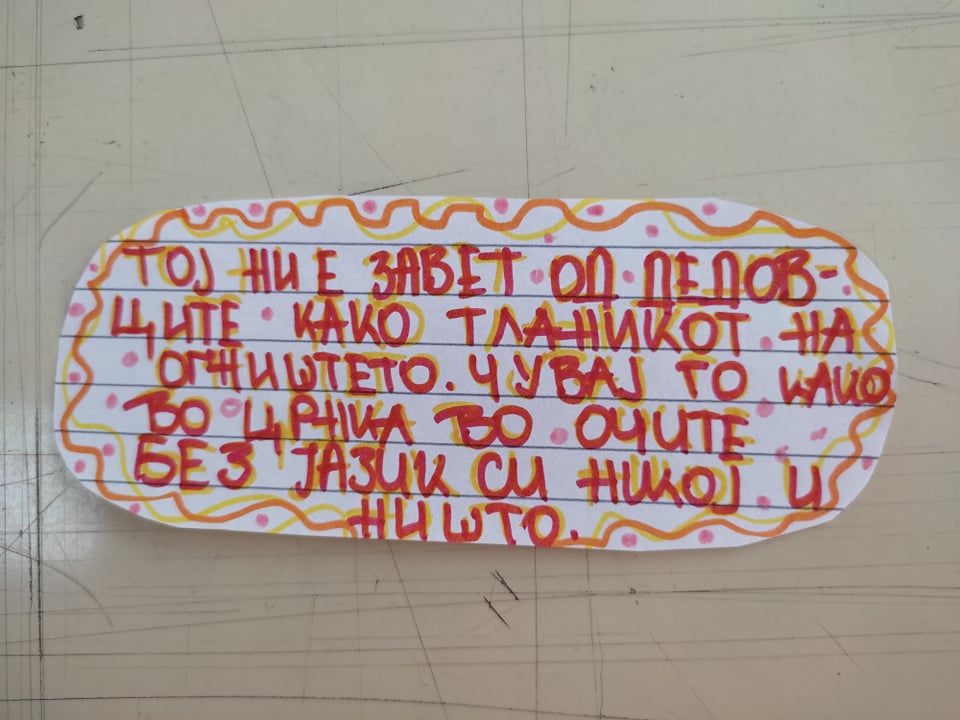 ТОЈ НИ Е ЗАВЕТ ОД ДЕДОВ-
ЦИТЕ КАКО ТЛАНИКОТ НА
ОГНИШТЕТО. ЧУВАЈ ГО КАКО
ВО ЦРНКА ВО ОЧИТЕ
БЕЗ ЈАЗИК СИ НИКОЈ И
НИШТО.